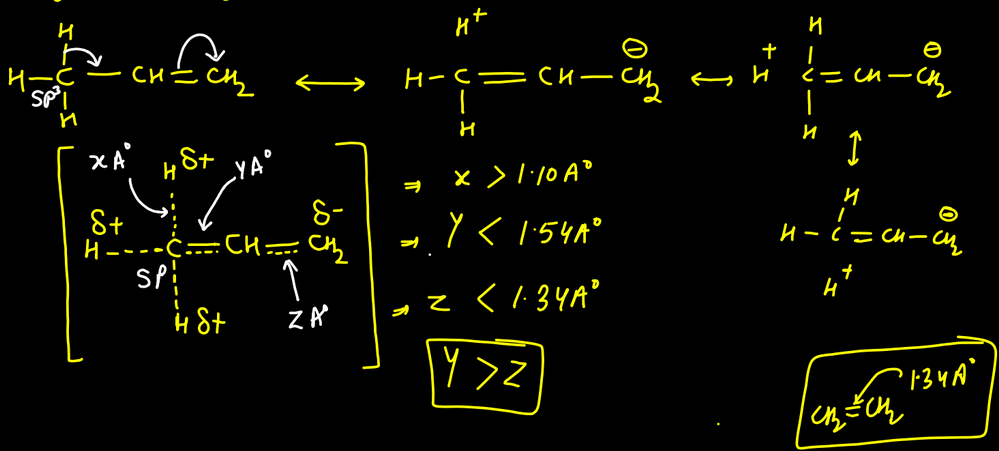 H
H–C–CH=CH₂
SP³
H
↔
H⁺
H–C=CH–CH₂
⊖
H
↔
H
H⁺ C=CH–CH₂
⊖
H
↕
H
H–C=CH–CH₂
⊖
H⁺
xA° H δ+ YA°
δ+ δ-
H-----C=CH=CH₂
SP
H δ+ ZA°
⇒ x > 1.10A°
⇒ Y < 1.54A°
⇒ Z < 1.34A°
Y > Z
1.34A°
CH₂=CH₂